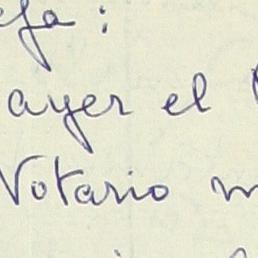 ayer el
Notario